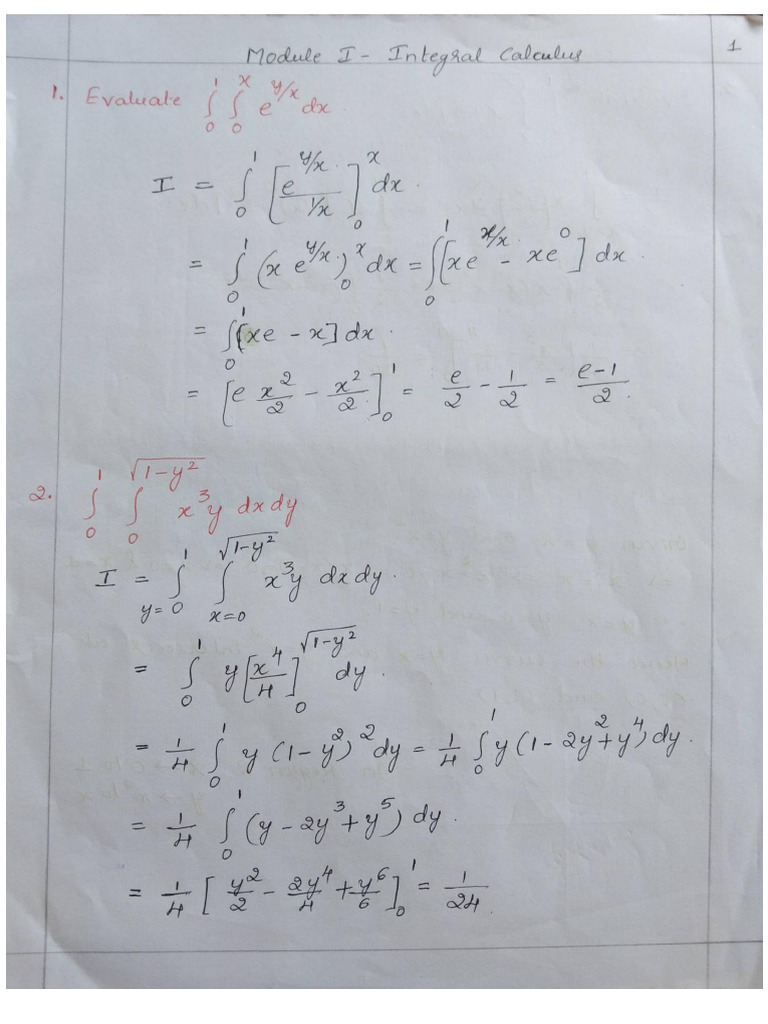 Module I - Integral Calculus
1
1. Evaluate ∫₀¹ ∫₀ˣ e^(y/x) dx.
I = ∫₀¹ [e^(y/x) / (1/x)]₀ˣ dx.
= ∫₀¹ (x e^(y/x))₀ˣ dx = ∫₀¹ [x e^(x/x) - x e⁰] dx.
= ∫₀¹ [xe - x] dx.
= [e x²/2 - x²/2]₀¹ = e/2 - 1/2 = (e-1)/2.
2. ∫₀¹ ∫₀^√(1-y²) x³y dx dy
I = ∫_(y=0)^1 ∫_(x=0)^√(1-y²) x³y dx dy.
= ∫₀¹ y [x⁴/4]₀^√(1-y²) dy.
= 1/4 ∫₀¹ y (1-y²)² dy = 1/4 ∫₀¹ y (1 - 2y² + y⁴) dy.
= 1/4 ∫₀¹ (y - 2y³ + y⁵) dy.
= 1/4 [y²/2 - 2y⁴/4 + y⁶/6]₀¹ = 1/24.